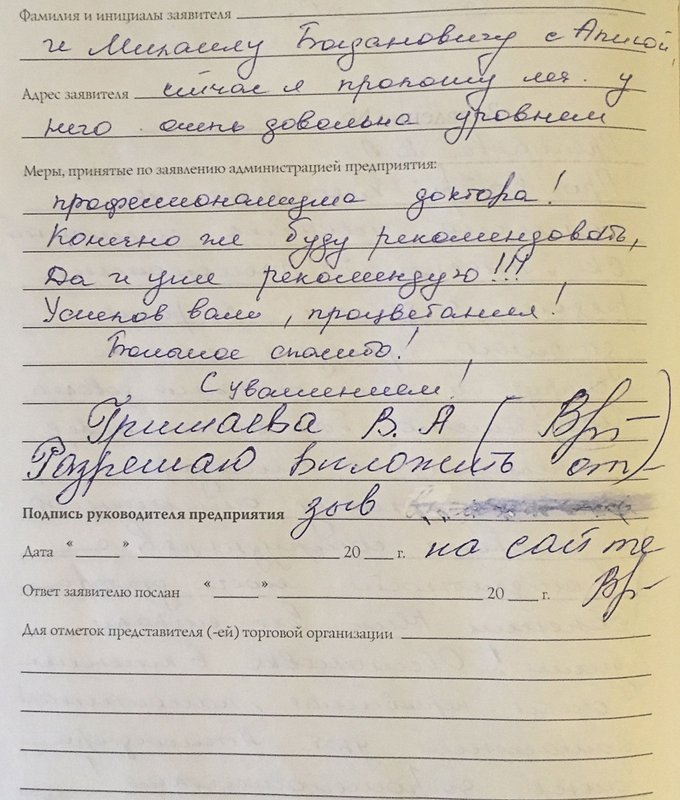 Фамилия и инициалы заявителя
и Михаилу Богдановичу с Алисой,
Адрес заявителя сейчас я прохожу леч. у
него. очень довольна уровнем
Меры, принятые по заявлению администрацией предприятия:
профессионализма доктора!
Конечно же буду рекомендовать,
Да и уже рекомендую!!!
Успехов вам, процветания!
Большое спасибо!
С уважением!
Гришаева В. А (
Разрешаю выложить от-
Подпись руководителя предприятия зыв
Дата « » 20 г. на сайте
Ответ заявителю послан « » 20 г.
Для отметок представителя (-ей) торговой организации